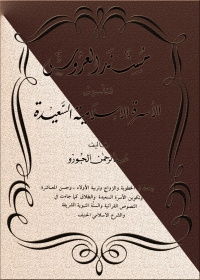 مسند العروس
قانون
الأسرة الإسلامية السعيدة
تأليف
الخطوبة والزواج وتربية الأولاد، وحسن المعاشرة
وتكوين الأسرة السعيدة والطلاق كما جاءت في
النصوص القرآنية والسنة النبوية الشريفة
والشرع الإسلامي الحنيف